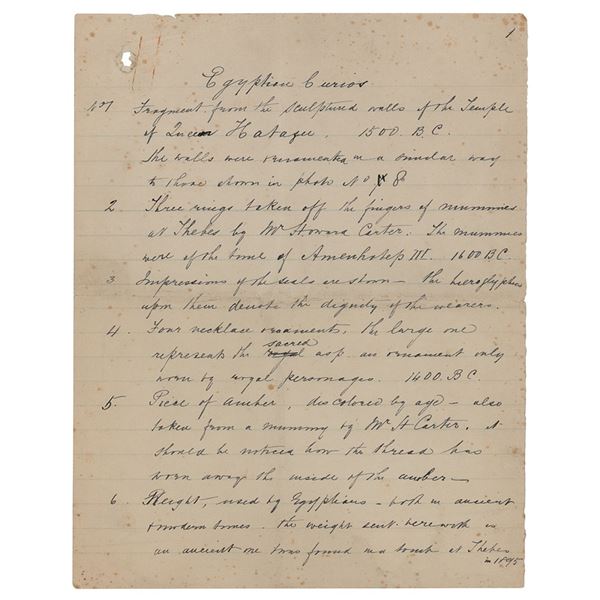 1
Egyptian Curios.
No 1 Fragment from the sculptured walls of the Temple
of Queen Hatasu. 1500 B.C.
The walls were ornamented in a similar way
to those shown in photo No 8
2. Three rings taken off the fingers of mummies
at Thebes by Mr Howard Carter. The mummies
were of the time of Amenhotep III. 1600 B.C.
3 Impressions of the seals are shown - the hieroglyphics
upon them denote the dignity of the wearers.
4. Four necklace ornaments, the large one
sacred
represents the royal asp an ornament only
worn by royal personages. 1400 B C.
5. Piece of amber, discolored by age - also
taken from a mummy by Mr H Carter. it
should be noticed how the thread has
worn away the inside of the amber -
6. Weight, used by Egyptians - both in ancient
& modern times. the weight sent herewith is
an ancient one & was found in a tomb at Thebes
in 1895